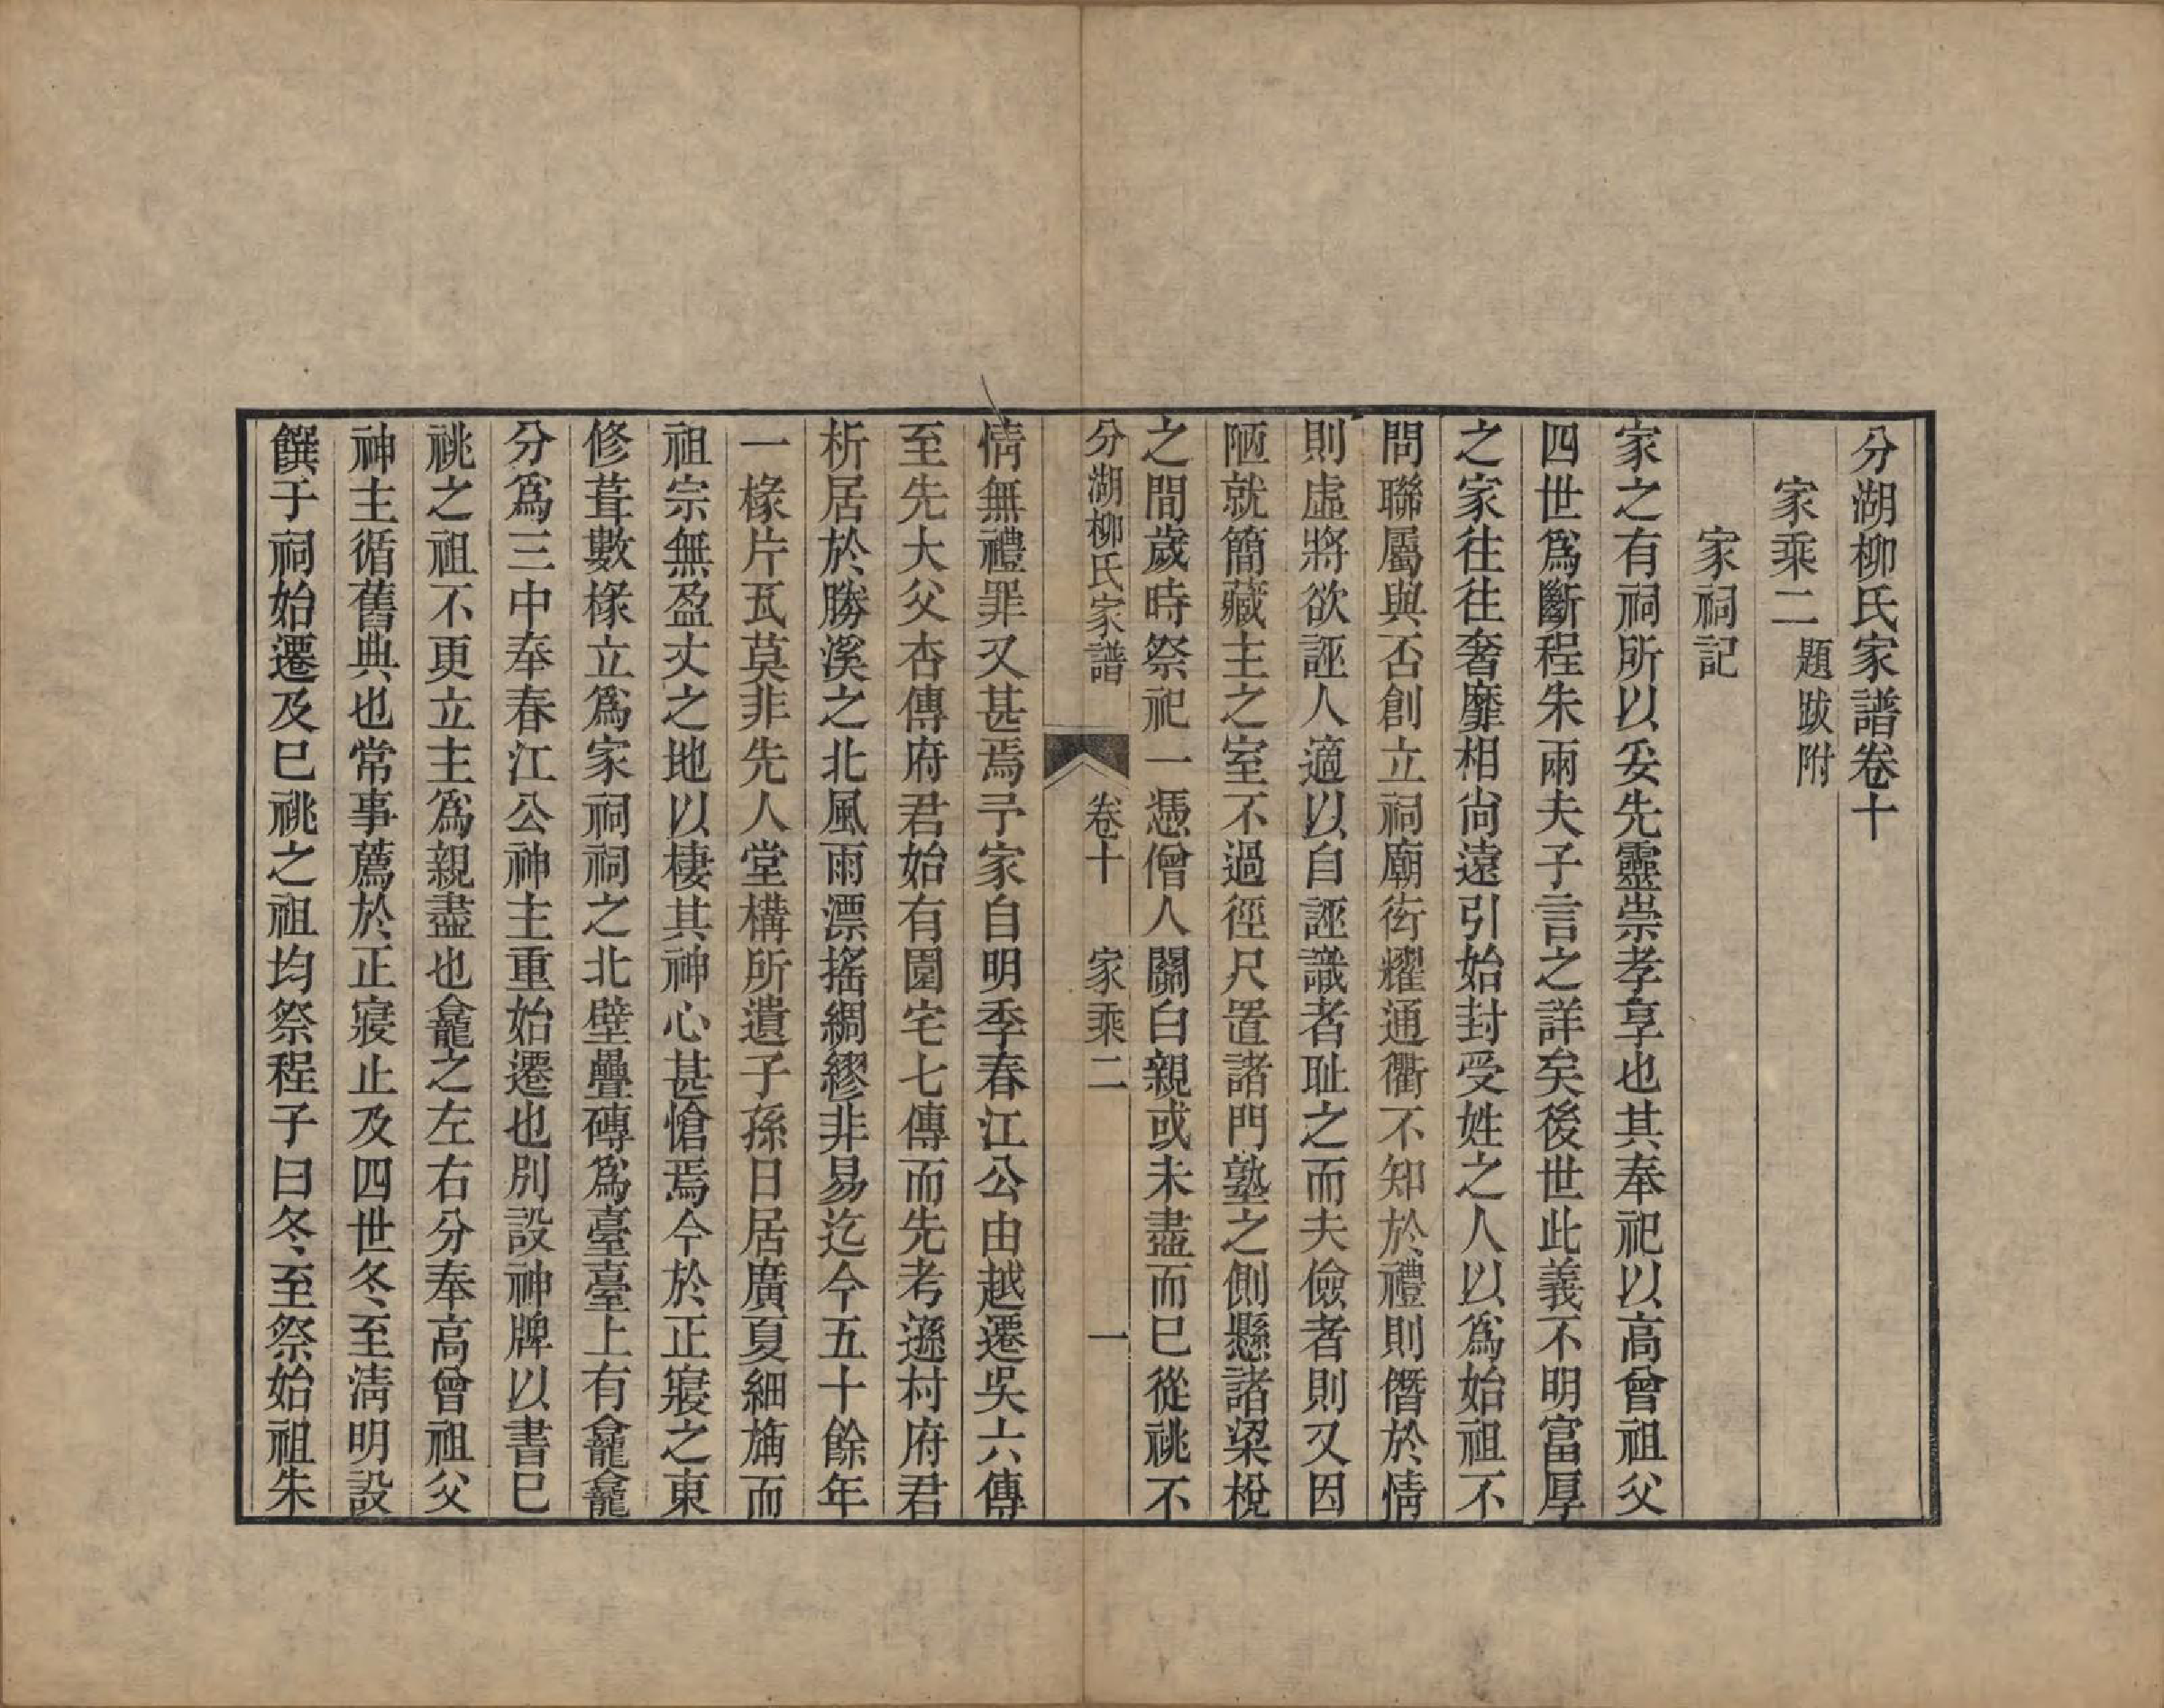 分湖柳氏家譜卷十
家乘二 題跋附
家祠記
家之有祠所以妥先靈崇孝享也其奉祀以高曾祖父
四世爲斷程朱兩夫子言之詳矣後世此義不明富厚
之家往往奢靡相尚遠引始封受姓之人以爲始祖不
問聯屬與否創立祠廟衒耀通衢不知於禮則僭於情
則虛將欲誣人適以自誣識者耻之而夫儉者則又因
陋就簡藏主之室不過徑尺置諸門塾之側懸諸梁梲
之間歲時祭祀一憑僧人關白親或未盡而巳從祧不
分湖柳氏家譜 卷十 家乘二 一
情無禮罪又甚焉予家自明季春江公由越遷吳六傳
至先大父杏傳府君始有園宅七傳而先考遜村府君
析居於勝溪之北風雨漂搖綢繆非易迄今五十餘年
一椽片瓦莫非先人堂構所遺子孫日居廣夏細旃而
祖宗無盈丈之地以棲其神心甚愴焉今於正寢之東
修葺數椽立爲家祠祠之北壁疊磚爲臺臺上有龕龕
分爲三中奉春江公神主重始遷也別設神牌以書巳
祧之祖不更立主爲親盡也龕之左右分奉高曾祖父
神主循舊典也常事薦於正寢止及四世冬至淸明設
饌于祠始遷及巳祧之祖均祭程子曰冬至祭始祖朱